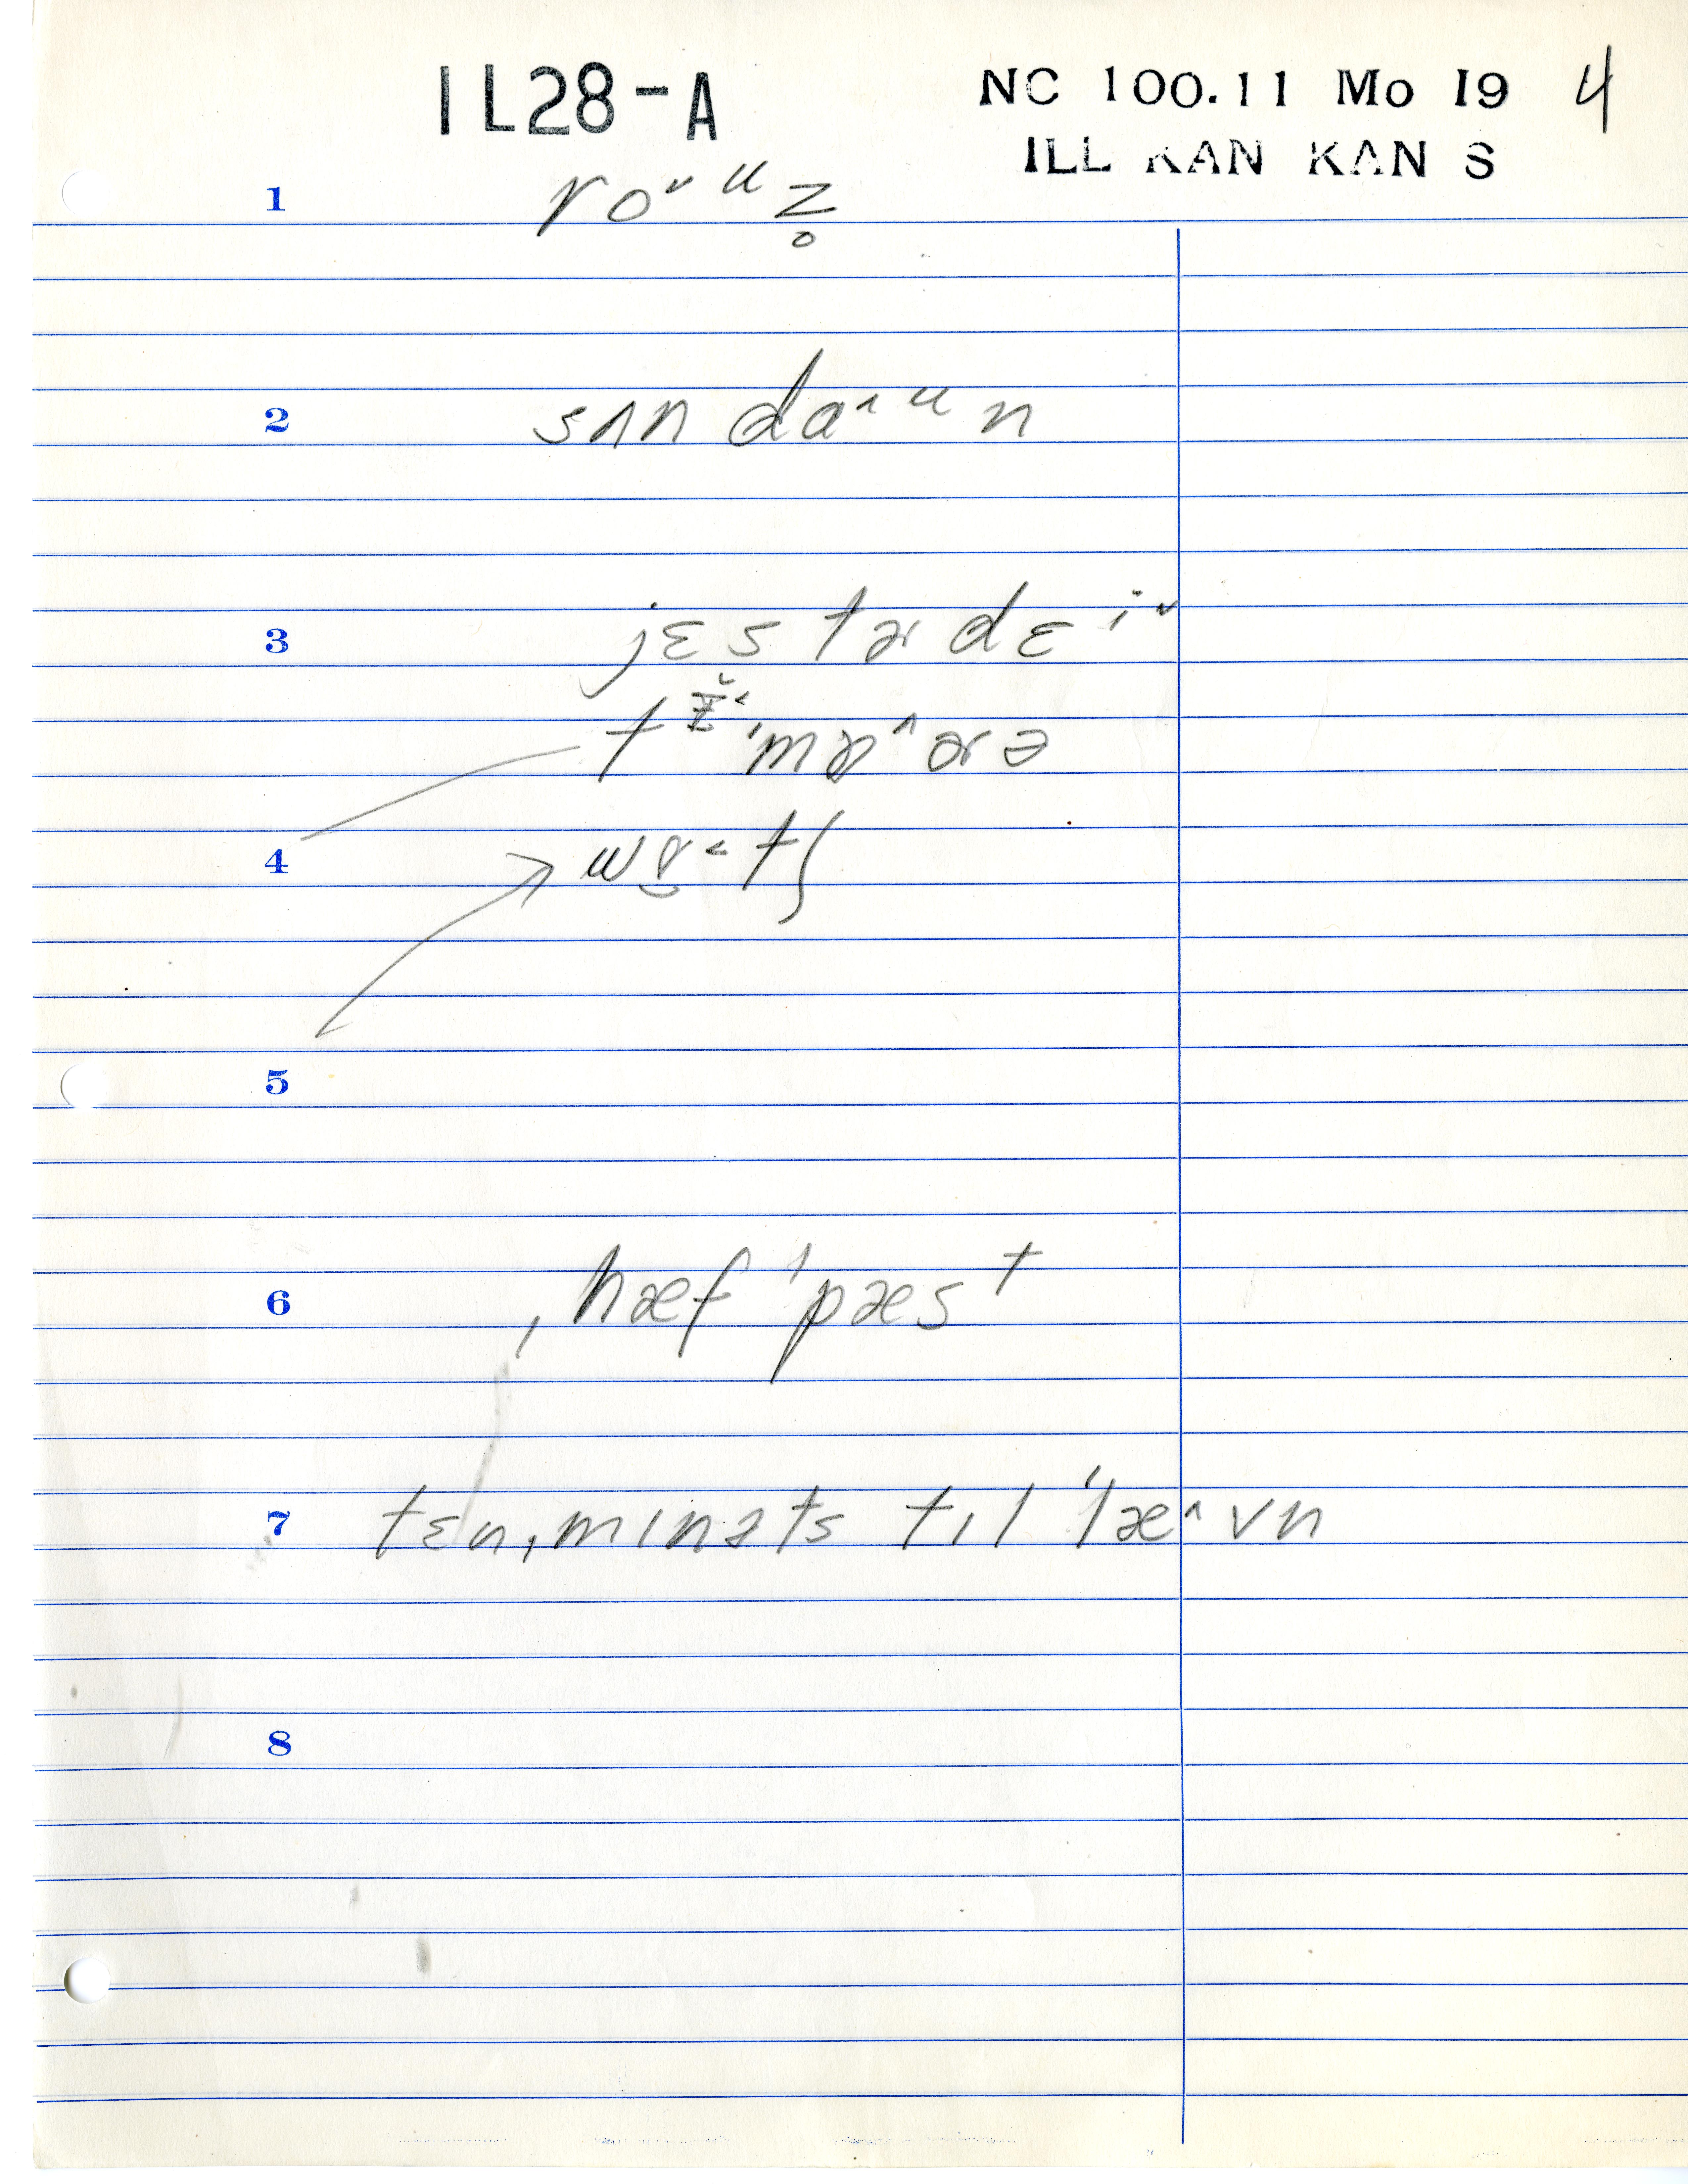 IL28-A
NC 100.11 Mo I9 4
ILL KAN KAN S
1 roˇᵘz̥
2 sʌn daˆᵘn
3 jɛstɚdɛⁱˇ
ˈmɒˆɚə
4
5
6 ˌhæf ˈpæst
7 tɛnˌmɪnəts tɪl ˈlæˆvn
8